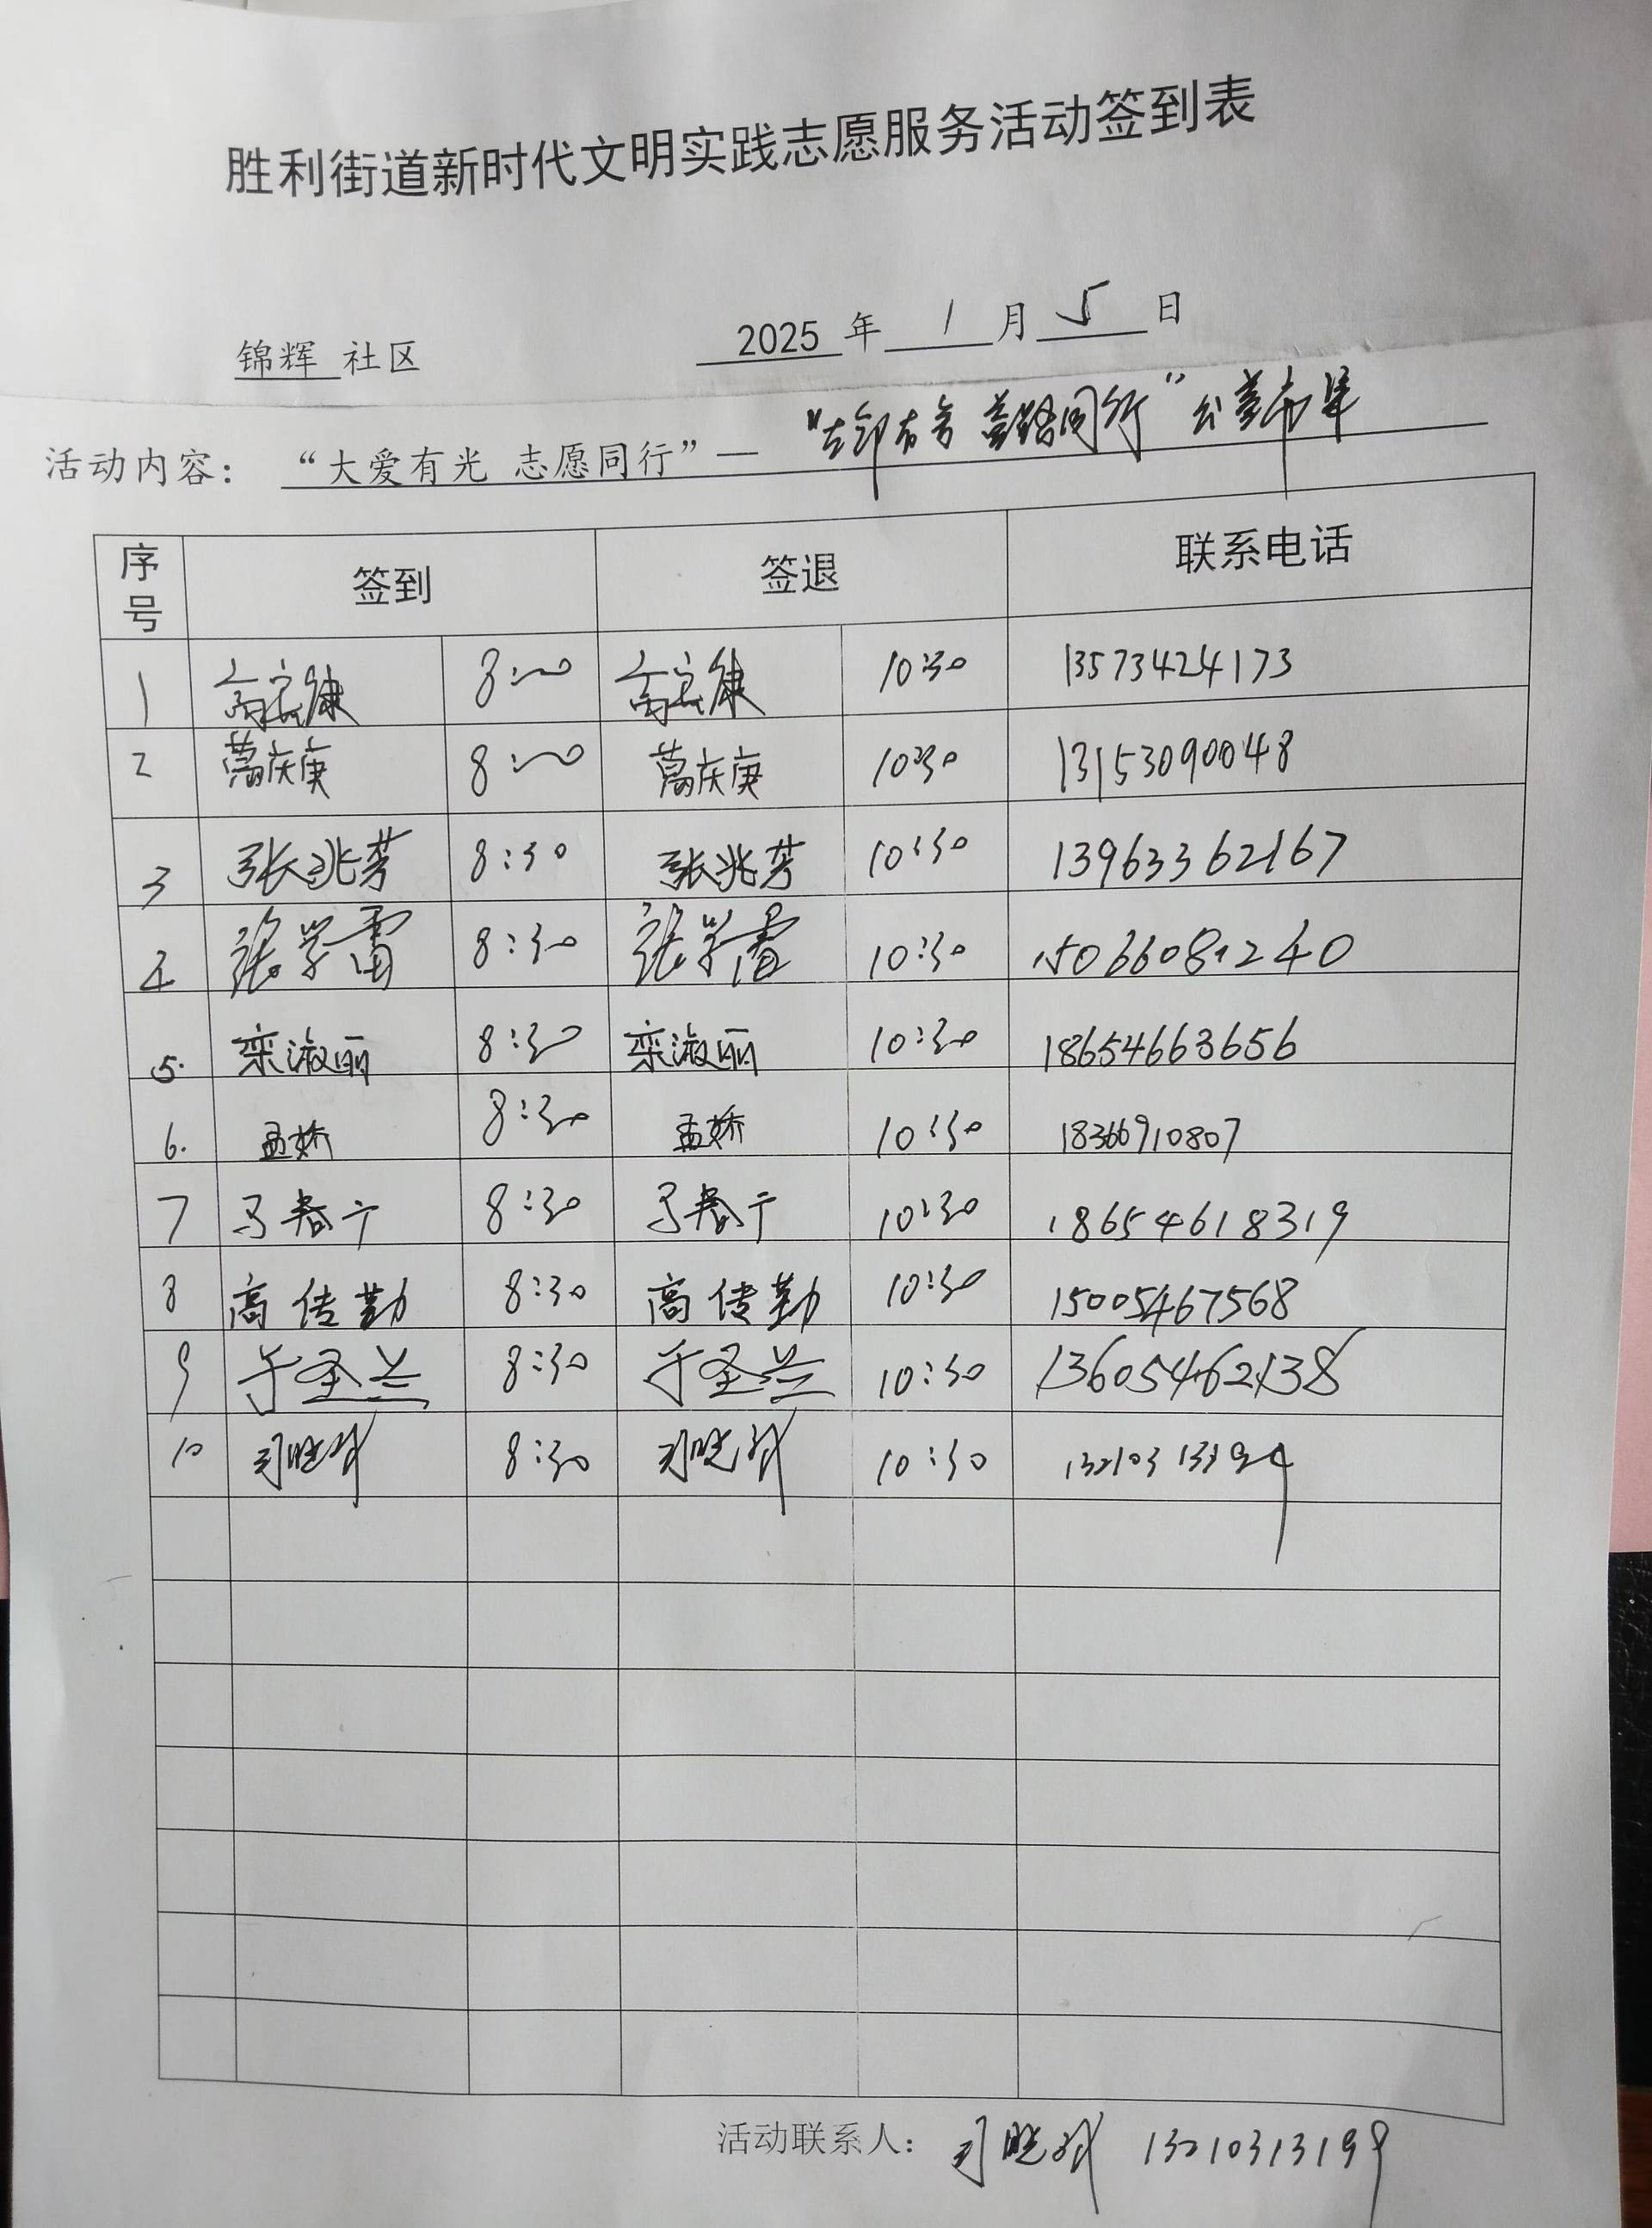 胜利街道新时代文明实践志愿服务活动签到表
锦辉 社区 2025 年 1 月 5 日
活动内容: “大爱有光 志愿同行”— “左邻右舍 益路同行”公益市集
序号 签到 签退 联系电话
1 8:00 10:30 13573424173
2 葛庆庚 8:00 葛庆庚 10:30 13153090048
3 张兆芳 8:30 张兆芳 10:30 13963362167
4 张学雷 8:30 张学雷 10:30 15066081240
5. 栾淑丽 8:30 栾淑丽 10:30 18654663656
6. 孟娇 8:30 孟娇 10:30 18366910807
7 马春宁 8:30 马春宁 10:30 18654618319
8 高传勤 8:30 高传勤 10:30 15005467568
9 于圣兰 8:30 于圣兰 10:30 13605462138
10 8:30 10:30
活动联系人: 13210313199